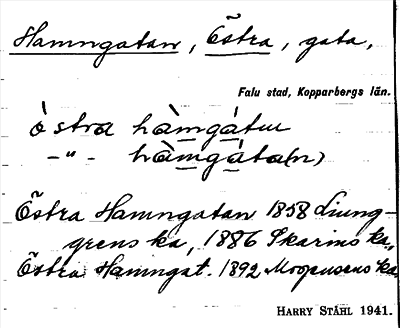 Hamngatan, Östra, gata,
Falu stad, Kopparbergs län.
ò̀stra hàmgàtu
-"- hàmgàta(n)
Östra Hamngatan 1858 Ljung-
grens ka, 1886 Skarins ka,
Östra Hamngat. 1892 Mogensens ka
HARRY STÅHL 1941.